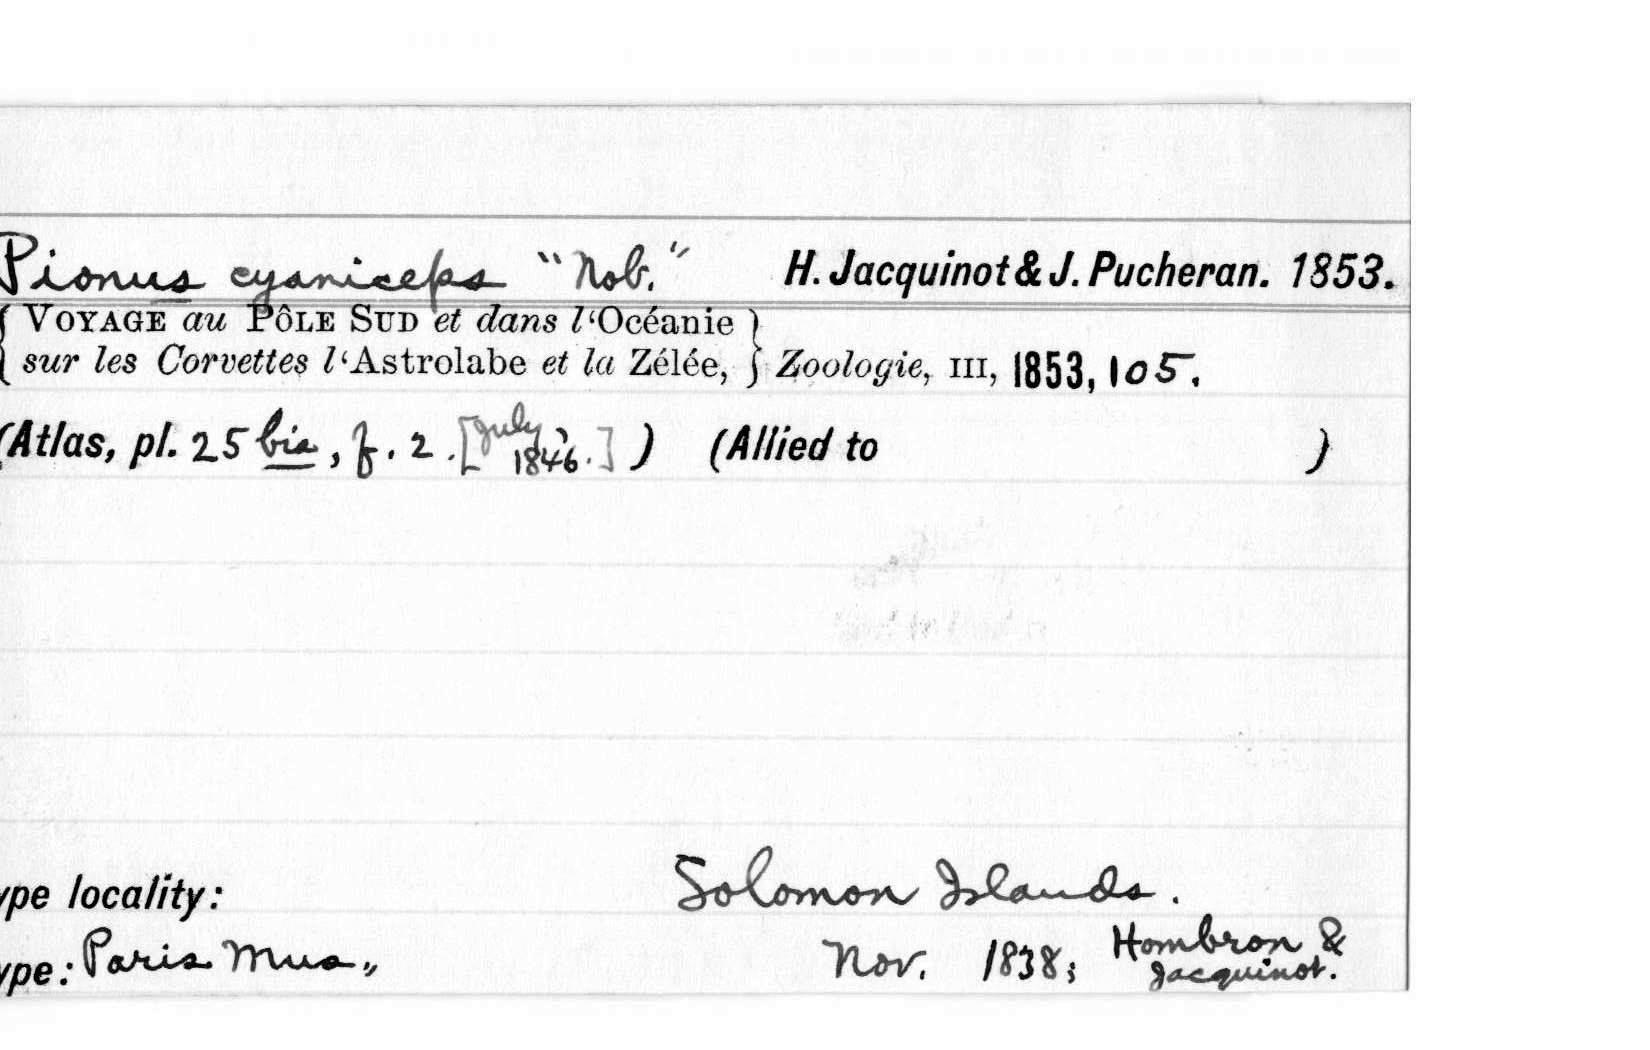 Pionus cyaniceps “Nob.” H. Jacquinot & J. Pucheran. 1853.
{ VOYAGE au PÔLE SUD et dans l‘Océanie }
{ sur les Corvettes l‘Astrolabe et la Zélée, } Zoologie, III, 1853, 105.
(Atlas, pl. 25 bis, f. 2. [July ? 1846.] ) (Allied to )
ype locality: Solomon Islands.
ype: Paris Mus., Nov. 1838; Hombron &
Jacquinot.